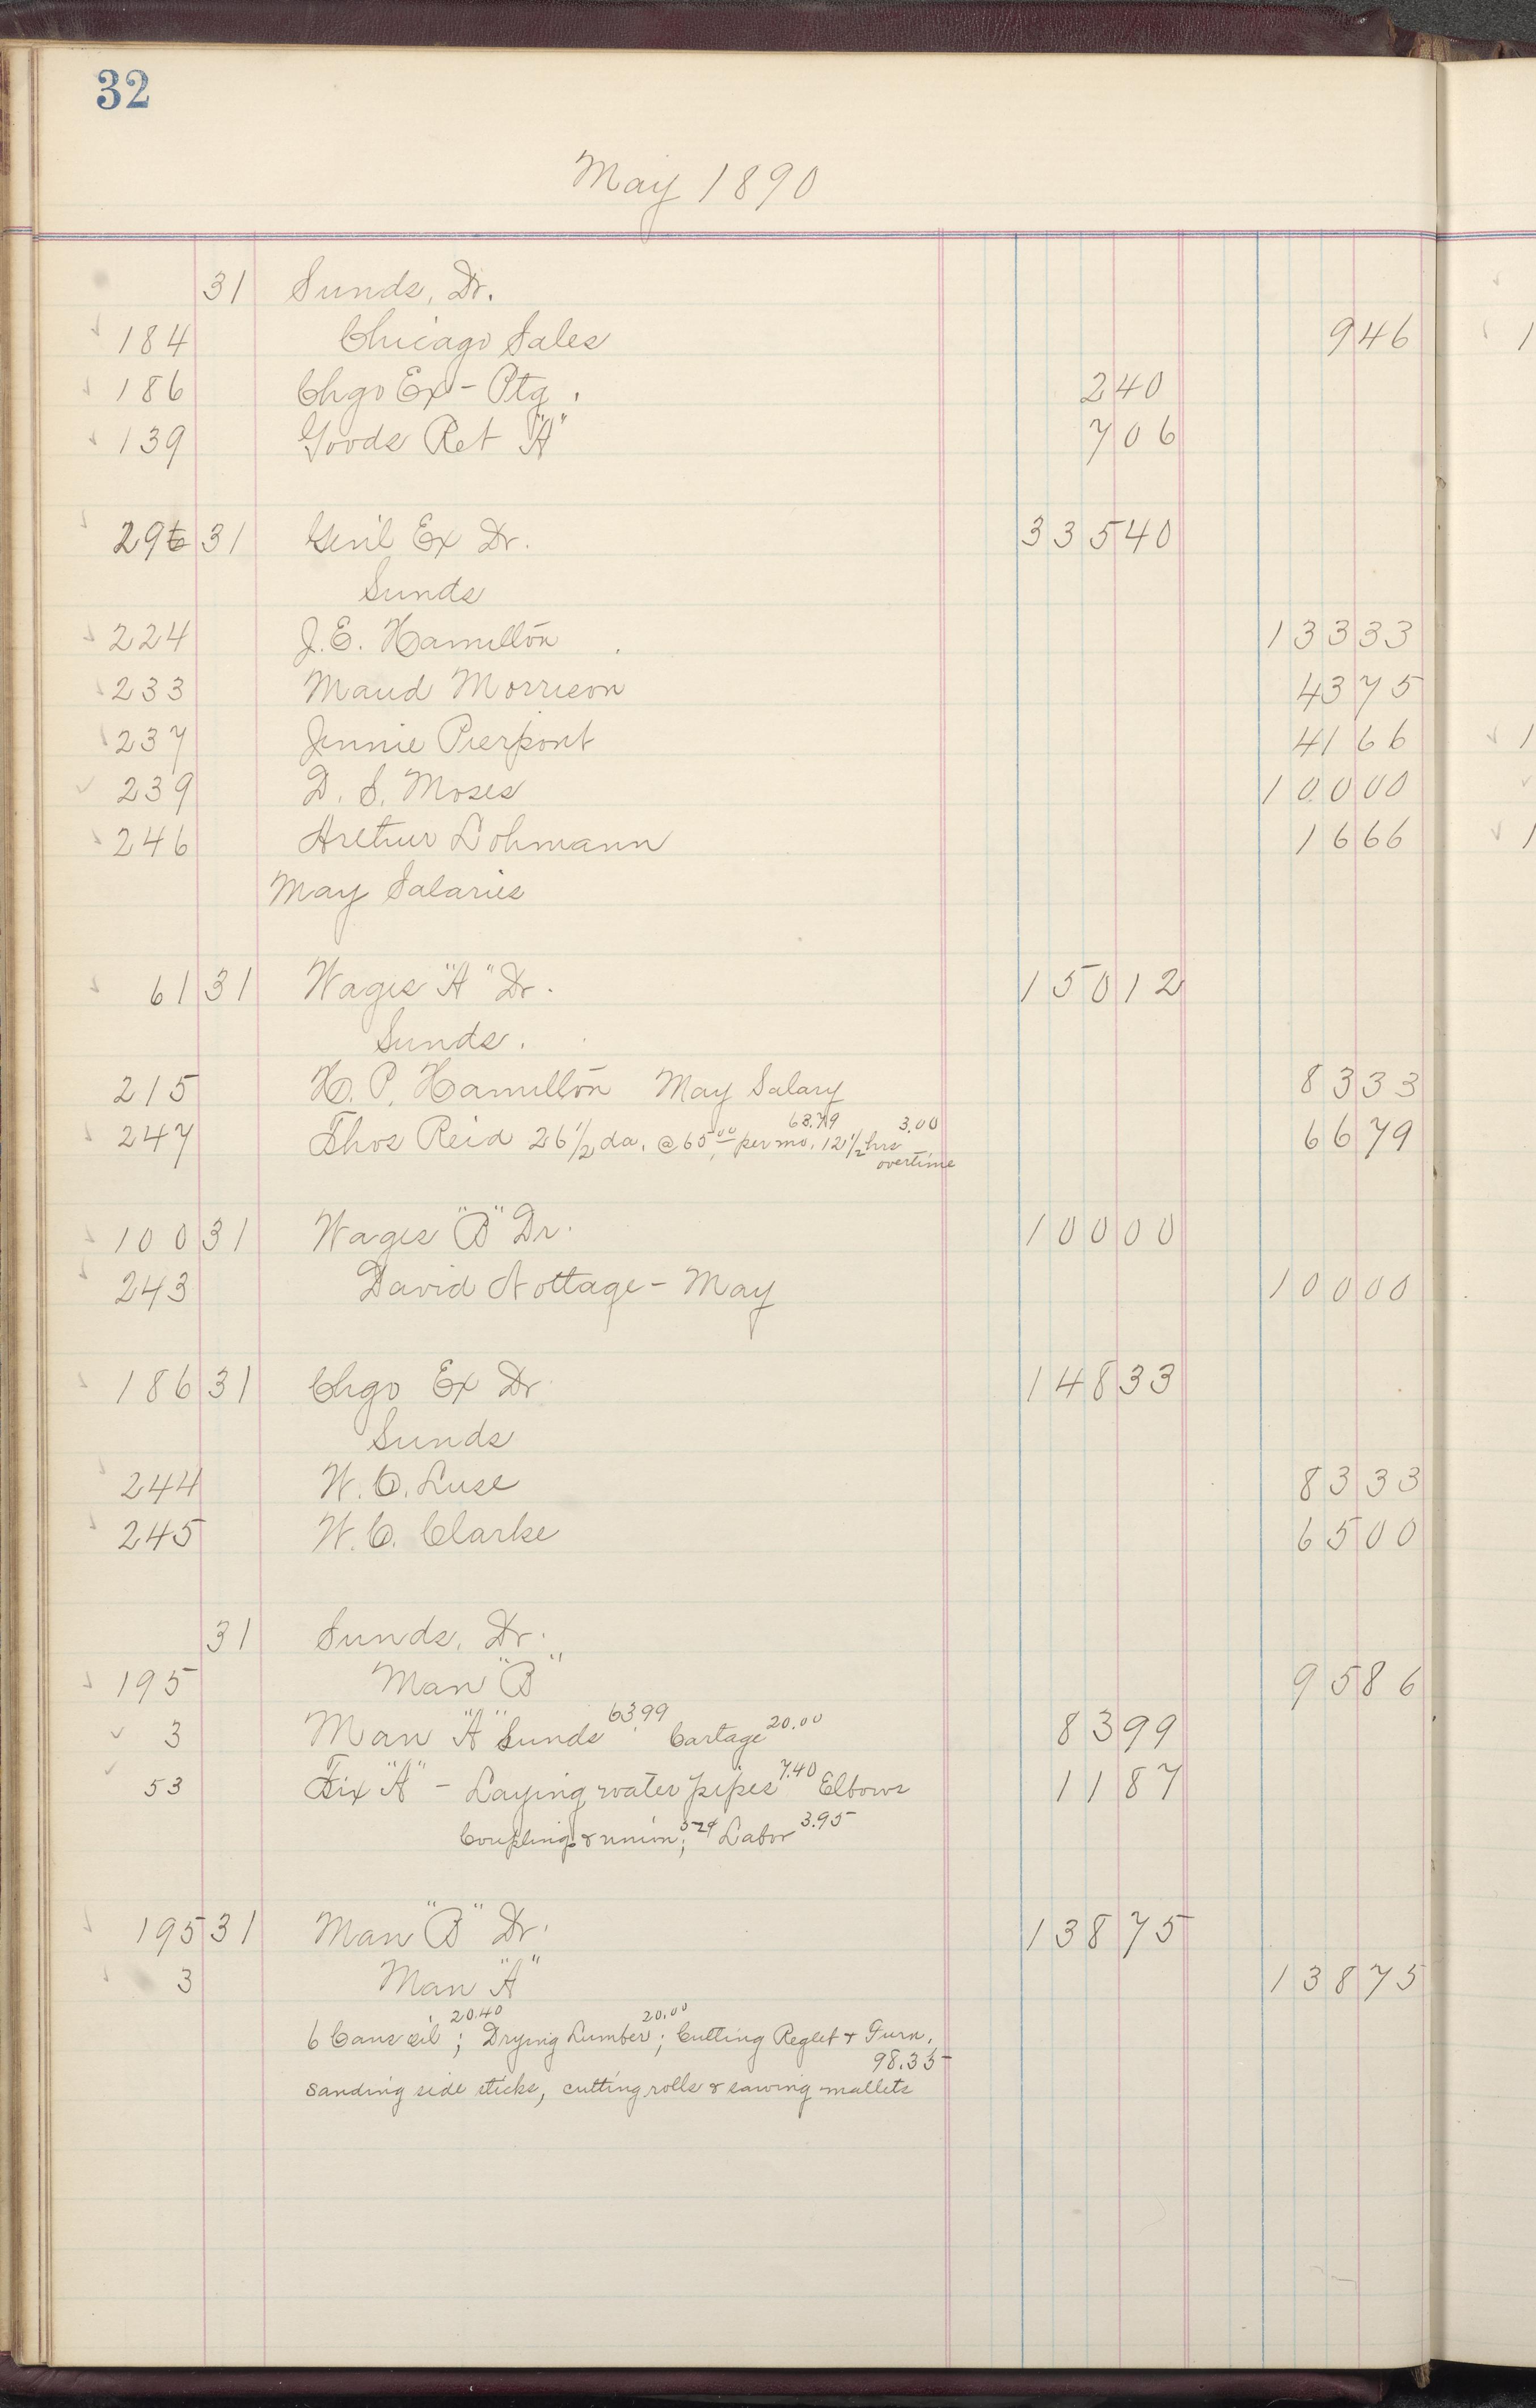 32
May 1890
31 Sunds, Dr.
184 Chicago Sales 9 46
186 Chgo Ex - Ptg. 2 40
139 Goods Ret "A" 7 06
296 31 Genl Ex Dr. 335 40
Sunds
224 J.E. Hamilton 133 33
233 Maud Morrison 43 75
237 Jennie Pierpont 41 66
239 D. S. Moses 100 00
246 Arthur Lohmann 16 66
May Salaries
61 31 Wages "A" Dr. 150 12
Sunds.
215 H. P. Hamilton May Salary 83 33
247 Thos Reid 26 1/2 da. @ 65.00 per mo. 63.79 12 1/2 hrs overtime 3.00 66 79
100 31 Wages "B" Dr. 100 00
243 David Nottage - May 100 00
186 31 Chgo Ex Dr. 148 33
Sunds
244 W. C. Luse 83 33
245 W. C. Clarke 65 00
31 Sunds, Dr.
195 Man "B" 95 86
3 Man "A" Sunds 63 99 Cartage 20.00 83 99
53 Fix "A" - Laying water pipes 7.40 Elbows 11 87
Coupling & union; 52¢ Labor 3.95
195 31 Man "B" Dr. 138 75
3 Man "A" 138 75
6 Cans oil 20.40; Drying Lumber 20.00; Cutting Reglet & Furn,
98.35
sanding side sticks, cutting rolls & sawing mallets